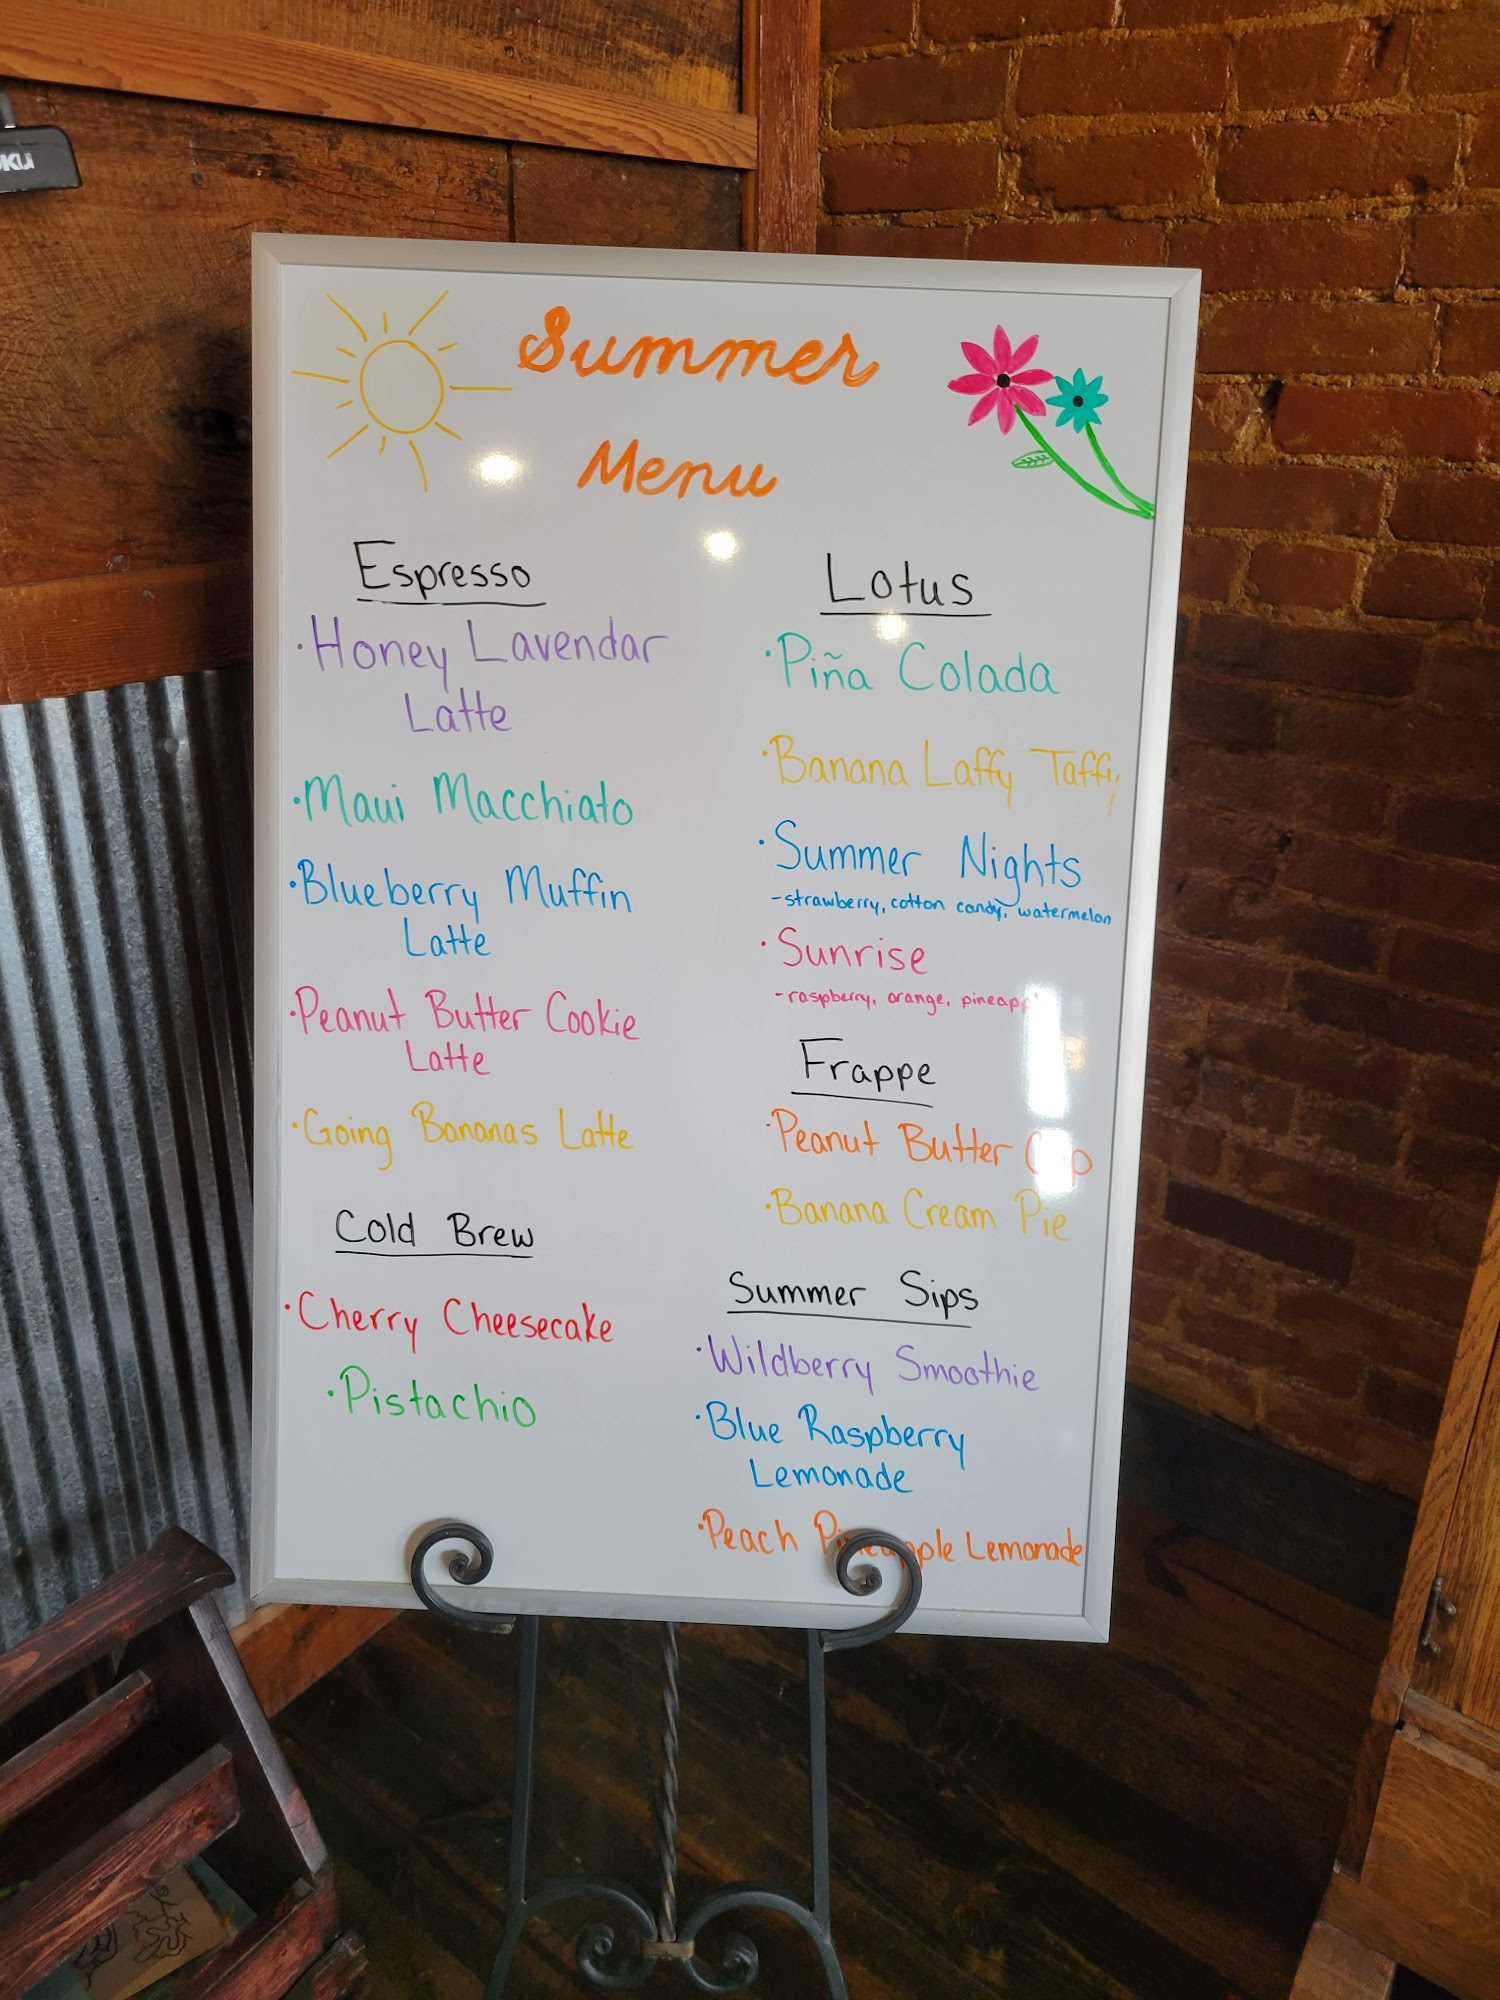 Summer
Menu
Espresso
·Honey Lavendar
Latte
·Maui Macchiato
·Blueberry Muffin
Latte
·Peanut Butter Cookie
Latte
·Going Bananas Latte
Cold Brew
·Cherry Cheesecake
·Pistachio
Lotus
·Piña Colada
·Banana Laffy Taffy
·Summer Nights
-strawberry, cotton candy, watermelon
·Sunrise
-raspberry, orange,
Frappe
·Peanut Butter
·Banana Cream Pie
Summer Sips
·Wildberry Smoothie
·Blue Raspberry
Lemonade
·Peach Pineapple Lemonade